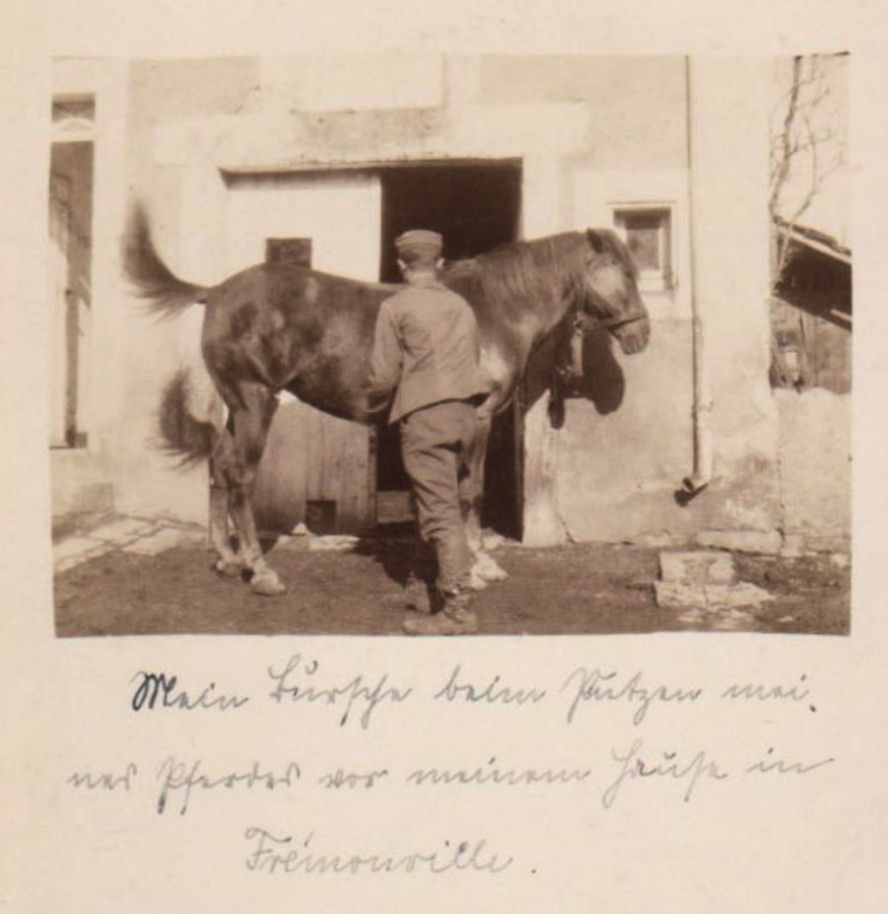 Mein Bursche beim Putzen mei-
nes Pferdes vor meinem Hause in
Frémonville.